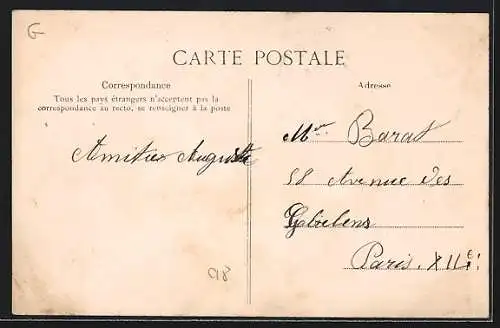 G
CARTE POSTALE
Correspondance
Tous les pays étrangers n'acceptent pas la
correspondance au recto, se renseigner à la poste
Amitiés Auguste
Adresse
Mr Barat
58 Avenue des
Gobelins
Paris. XIIe!
C18